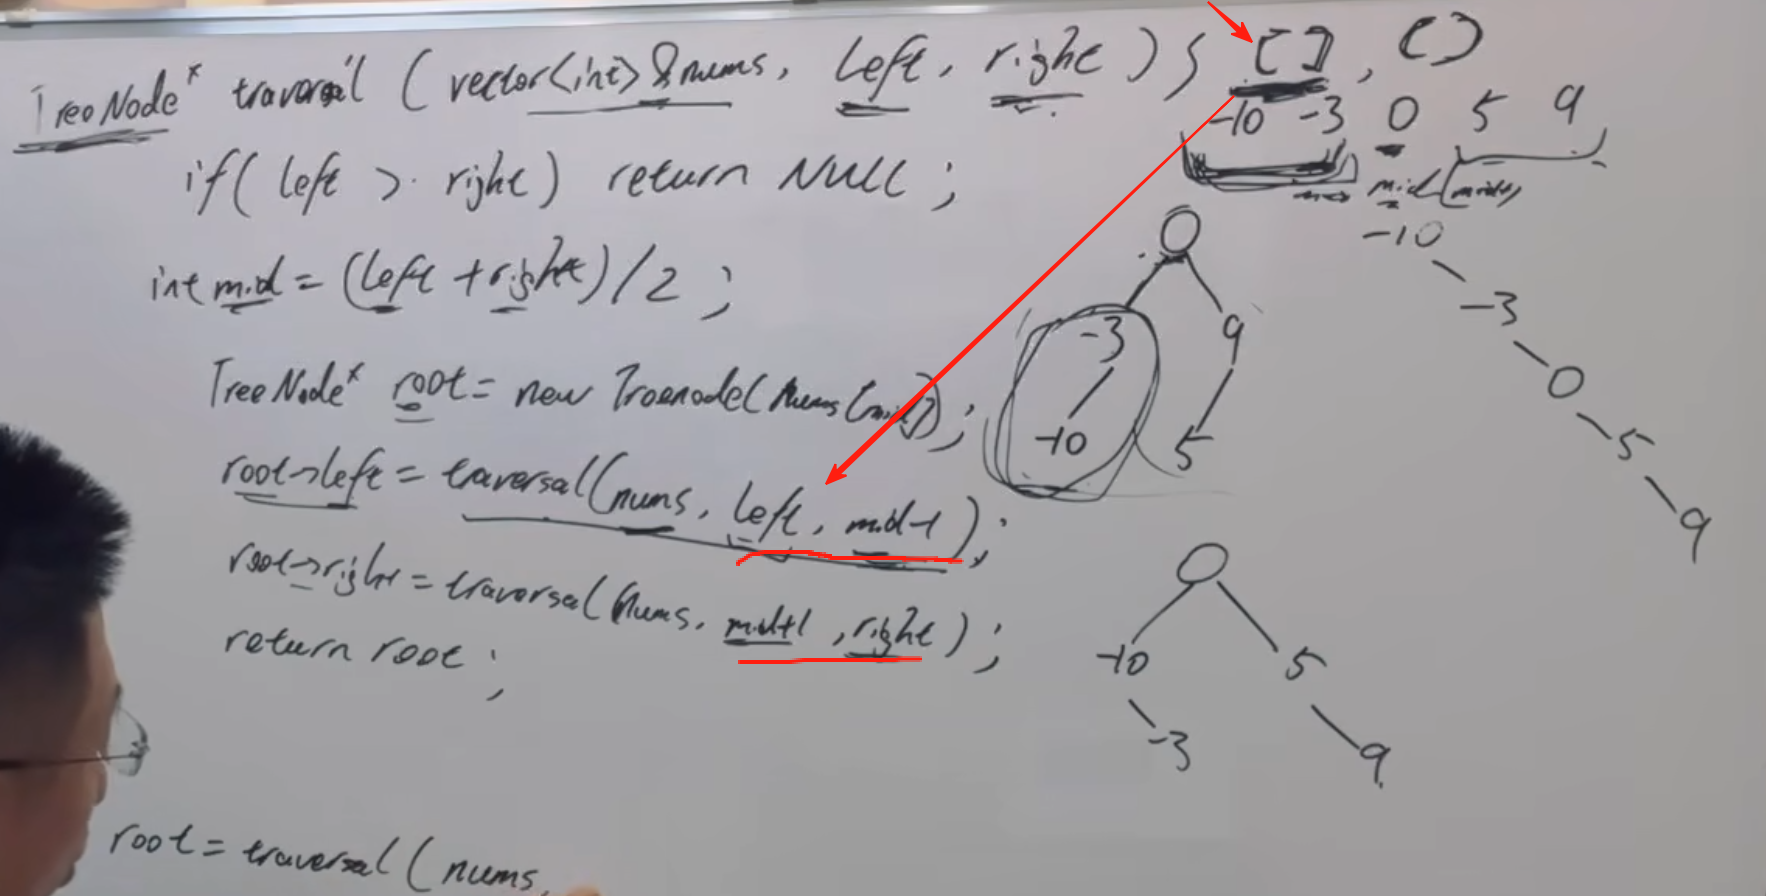 TreeNode* traversal (vector<int> &nums, left, right) { [], [)
-10 -3 0 5 9
if( left > right) return NULL;
mid (mid+1)
int mid = (left + right)/2;
TreeNode* root = new Treenode(nums[mid]);
root->left = traversal(nums, left, mid-1);
root->right = traversal(nums, mid+1, right);
return root;
root = traversal( nums,
0
-3 9
-10 5
-10
-3
0
5
9
0
-10 5
-3 9